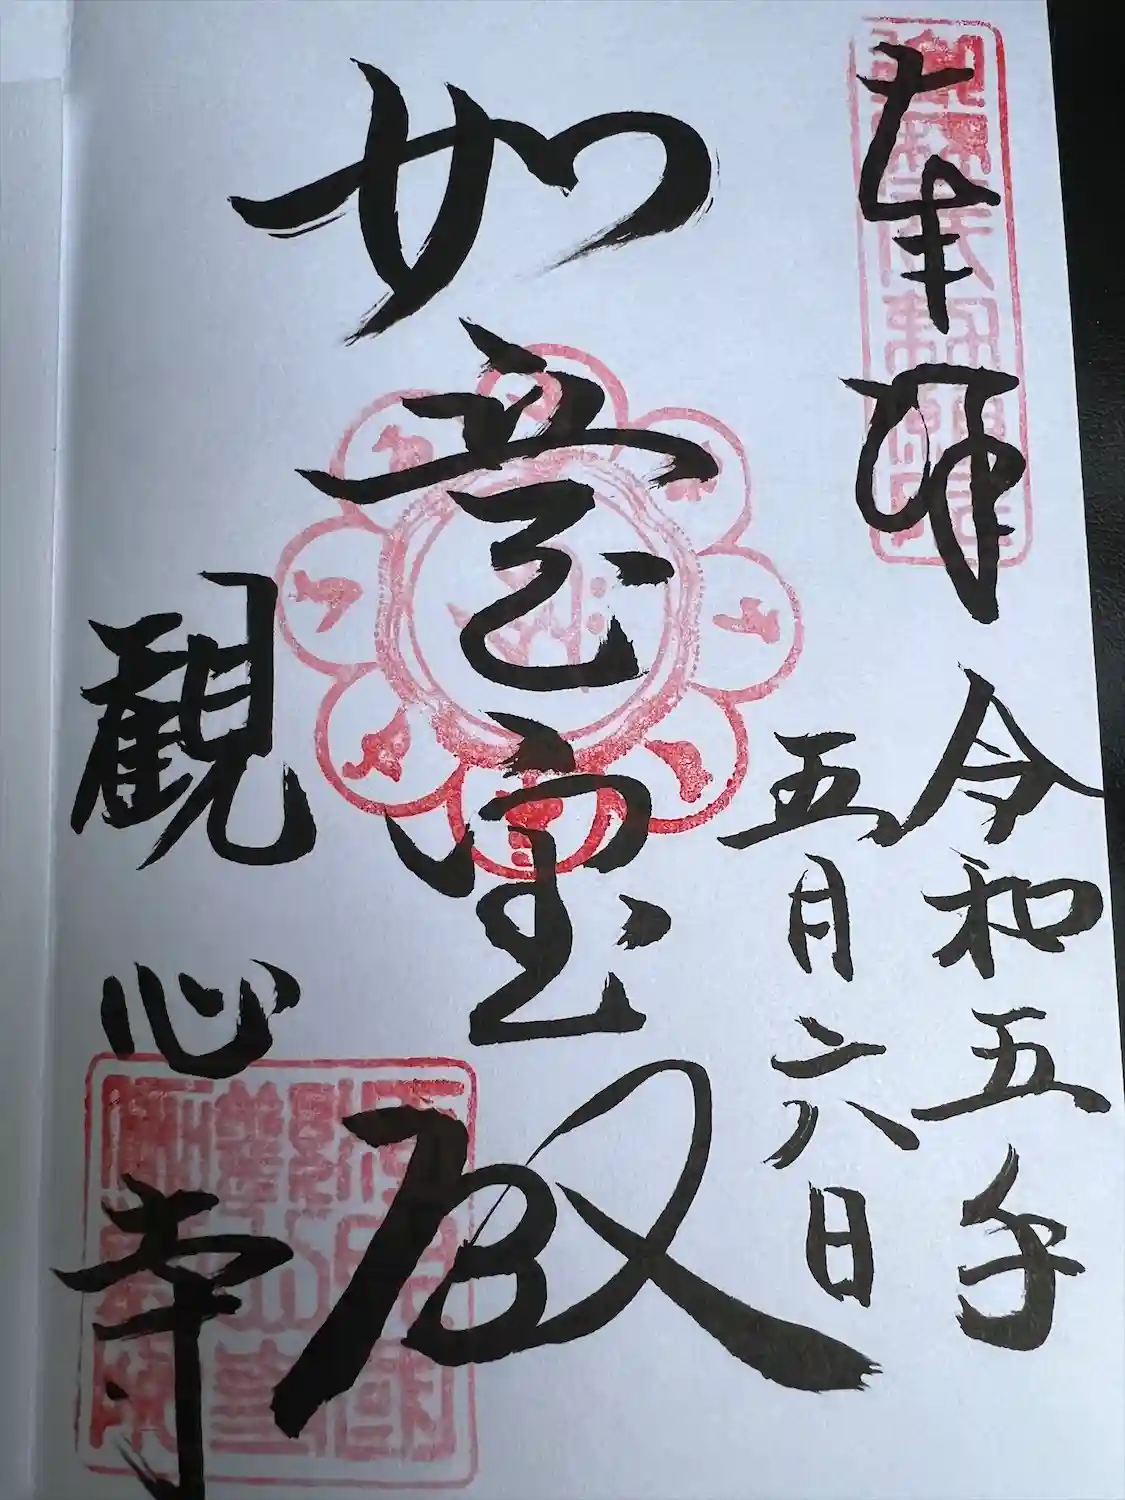 奉拝
令和五年
五月六日
如意宝殿
観心寺